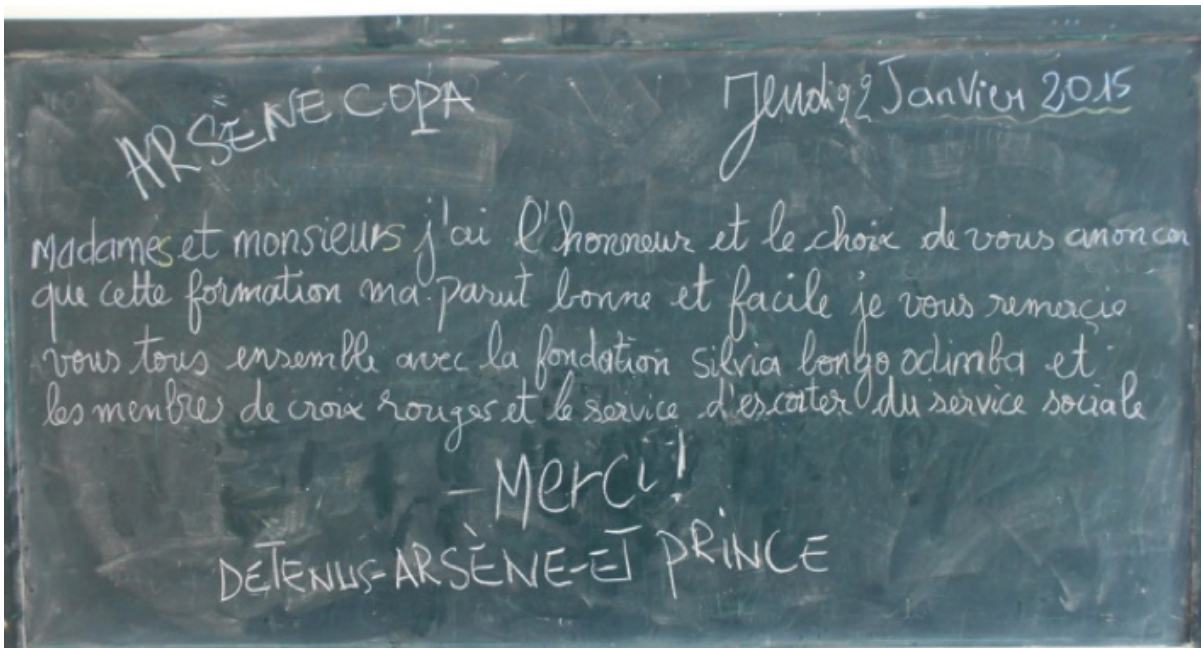 ARSÈNE COPA
Jeudi 22 Janvier 2015
Madames et monsieurs j'ai l'honneur et le choix de vous anoncer
que cette formation ma parut bonne et facile je vous remercie
vous tous ensemble avec la fondation Silvia bongo odimba et
les menbres de croix rouges et le service d'escorter du service sociale
- Merci!
DETENUS-ARSÈNE-ET PRINCE